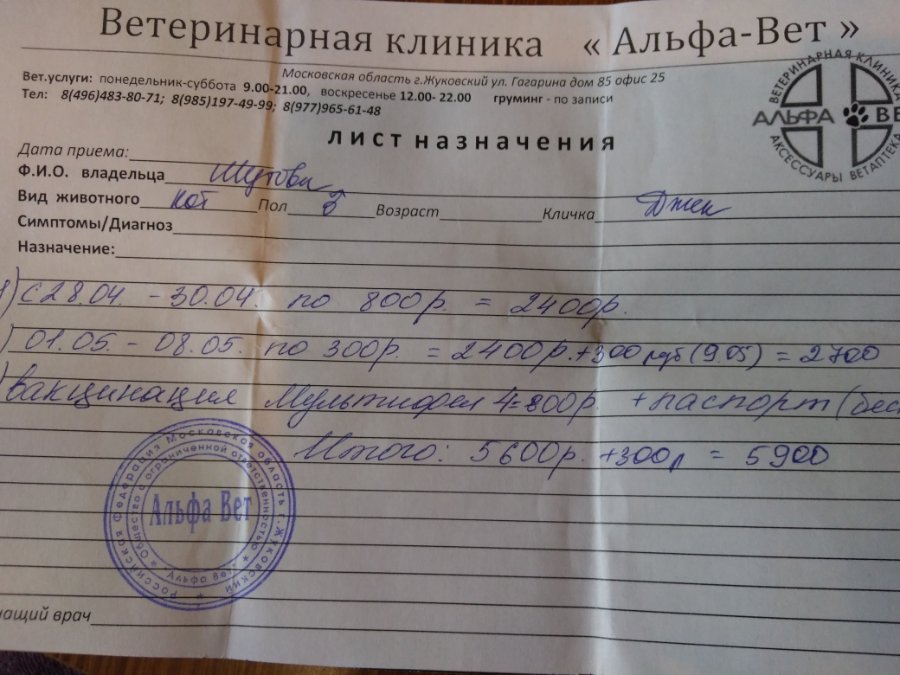 Ветеринарная клиника « Альфа-Вет »
Московская область г.Жуковский ул. Гагарина дом 85 офис 25
Вет.услуги: понедельник-суббота 9.00-21.00, воскресенье 12.00- 22.00 груминг - по записи
Тел: 8(496)483-80-71; 8(985)197-49-99; 8(977)965-61-48
ВЕТЕРИНАРНАЯ КЛИНИКА
АЛЬФА ВЕ
АКСЕССУАРЫ ВЕТАПТЕКА
ЛИСТ НАЗНАЧЕНИЯ
Дата приема:
Ф.И.О. владельца
Вид животного кот Пол Возраст Кличка Джек
Симптомы/Диагноз
Назначение:
1) с 28.04 - 30.04. по 800р. = 2400р.
) 01.05. - 08.05. по 300р. = 2400р.+300 руб (9.05) = 2700
) вакцинация Мультифел 4=800р. + паспорт (бес
Итого: 5600р. +300р = 5900
Российская Федерация Московская область г. Жуковский
Общество с ограниченной ответственностью
Альфа Вет
ащий врач